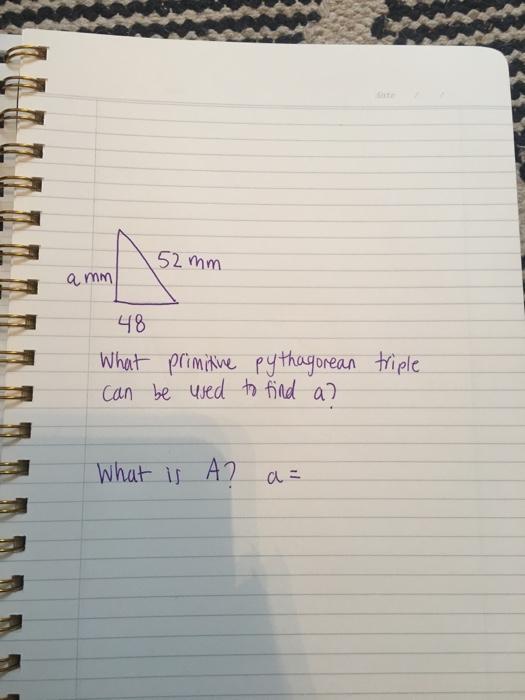 date / /
52 mm
a mm
48
What primitive pythagorean triple
can be used to find a?
What is A? a =